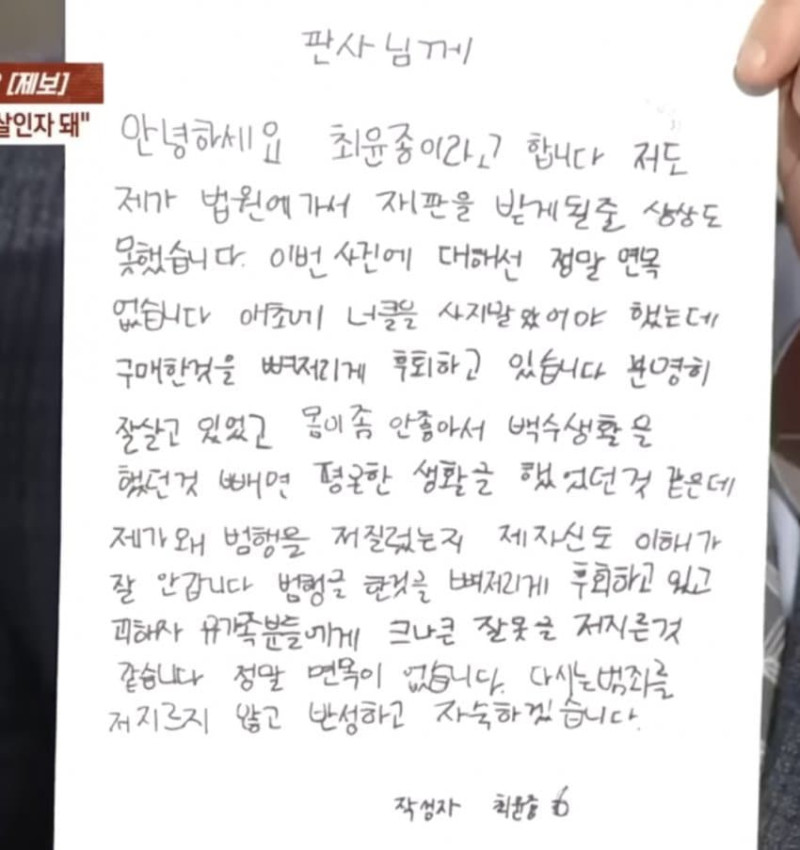 [제보]
살인자 돼"
판사님께
안녕하세요 최윤종이라고 합니다 저도
제가 법원에가서 재판을 받게될줄 상상도
못했습니다. 이번 사건에 대해선 정말 면목
없습니다 애초에 너클을 사지말았어야 했는데
구매한것을 뼈저리게 후회하고 있습니다 분명히
잘살고 있었고 몸이좀 안좋아서 백수생활을
했던것 빼면 평온한 생활을 했었던것 같은데
제가왜 범행을 저질렀는지 제자신도 이해가
잘 안갑니다 범행을 한것을 뼈저리게 후회하고 있고
피해자 유가족분들에게 크나큰 잘못을 저지른것
같습니다 정말 면목이 없습니다. 다시는범죄를
저지르지 않고 반성하고 자숙하겠습니다.
작성자 최윤종